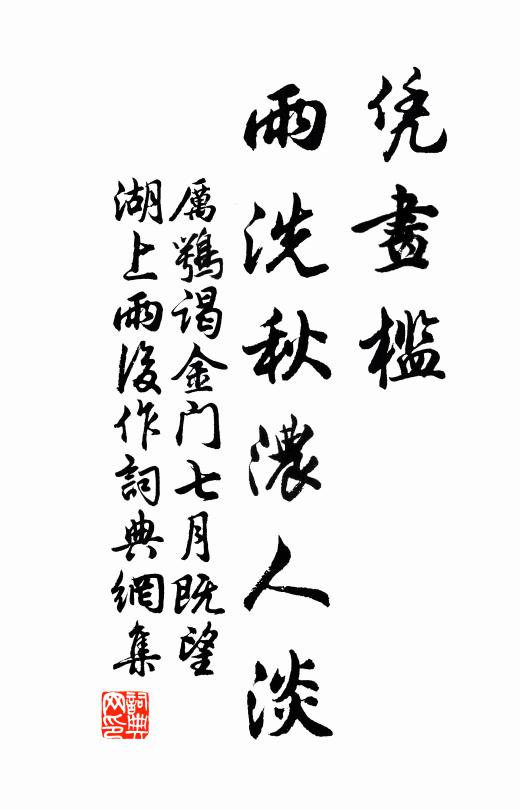 凭畫檻
雨洗秋濃人淡
厲鶚謁金门七月既望
湖上雨後作詞典網集
詞典网印